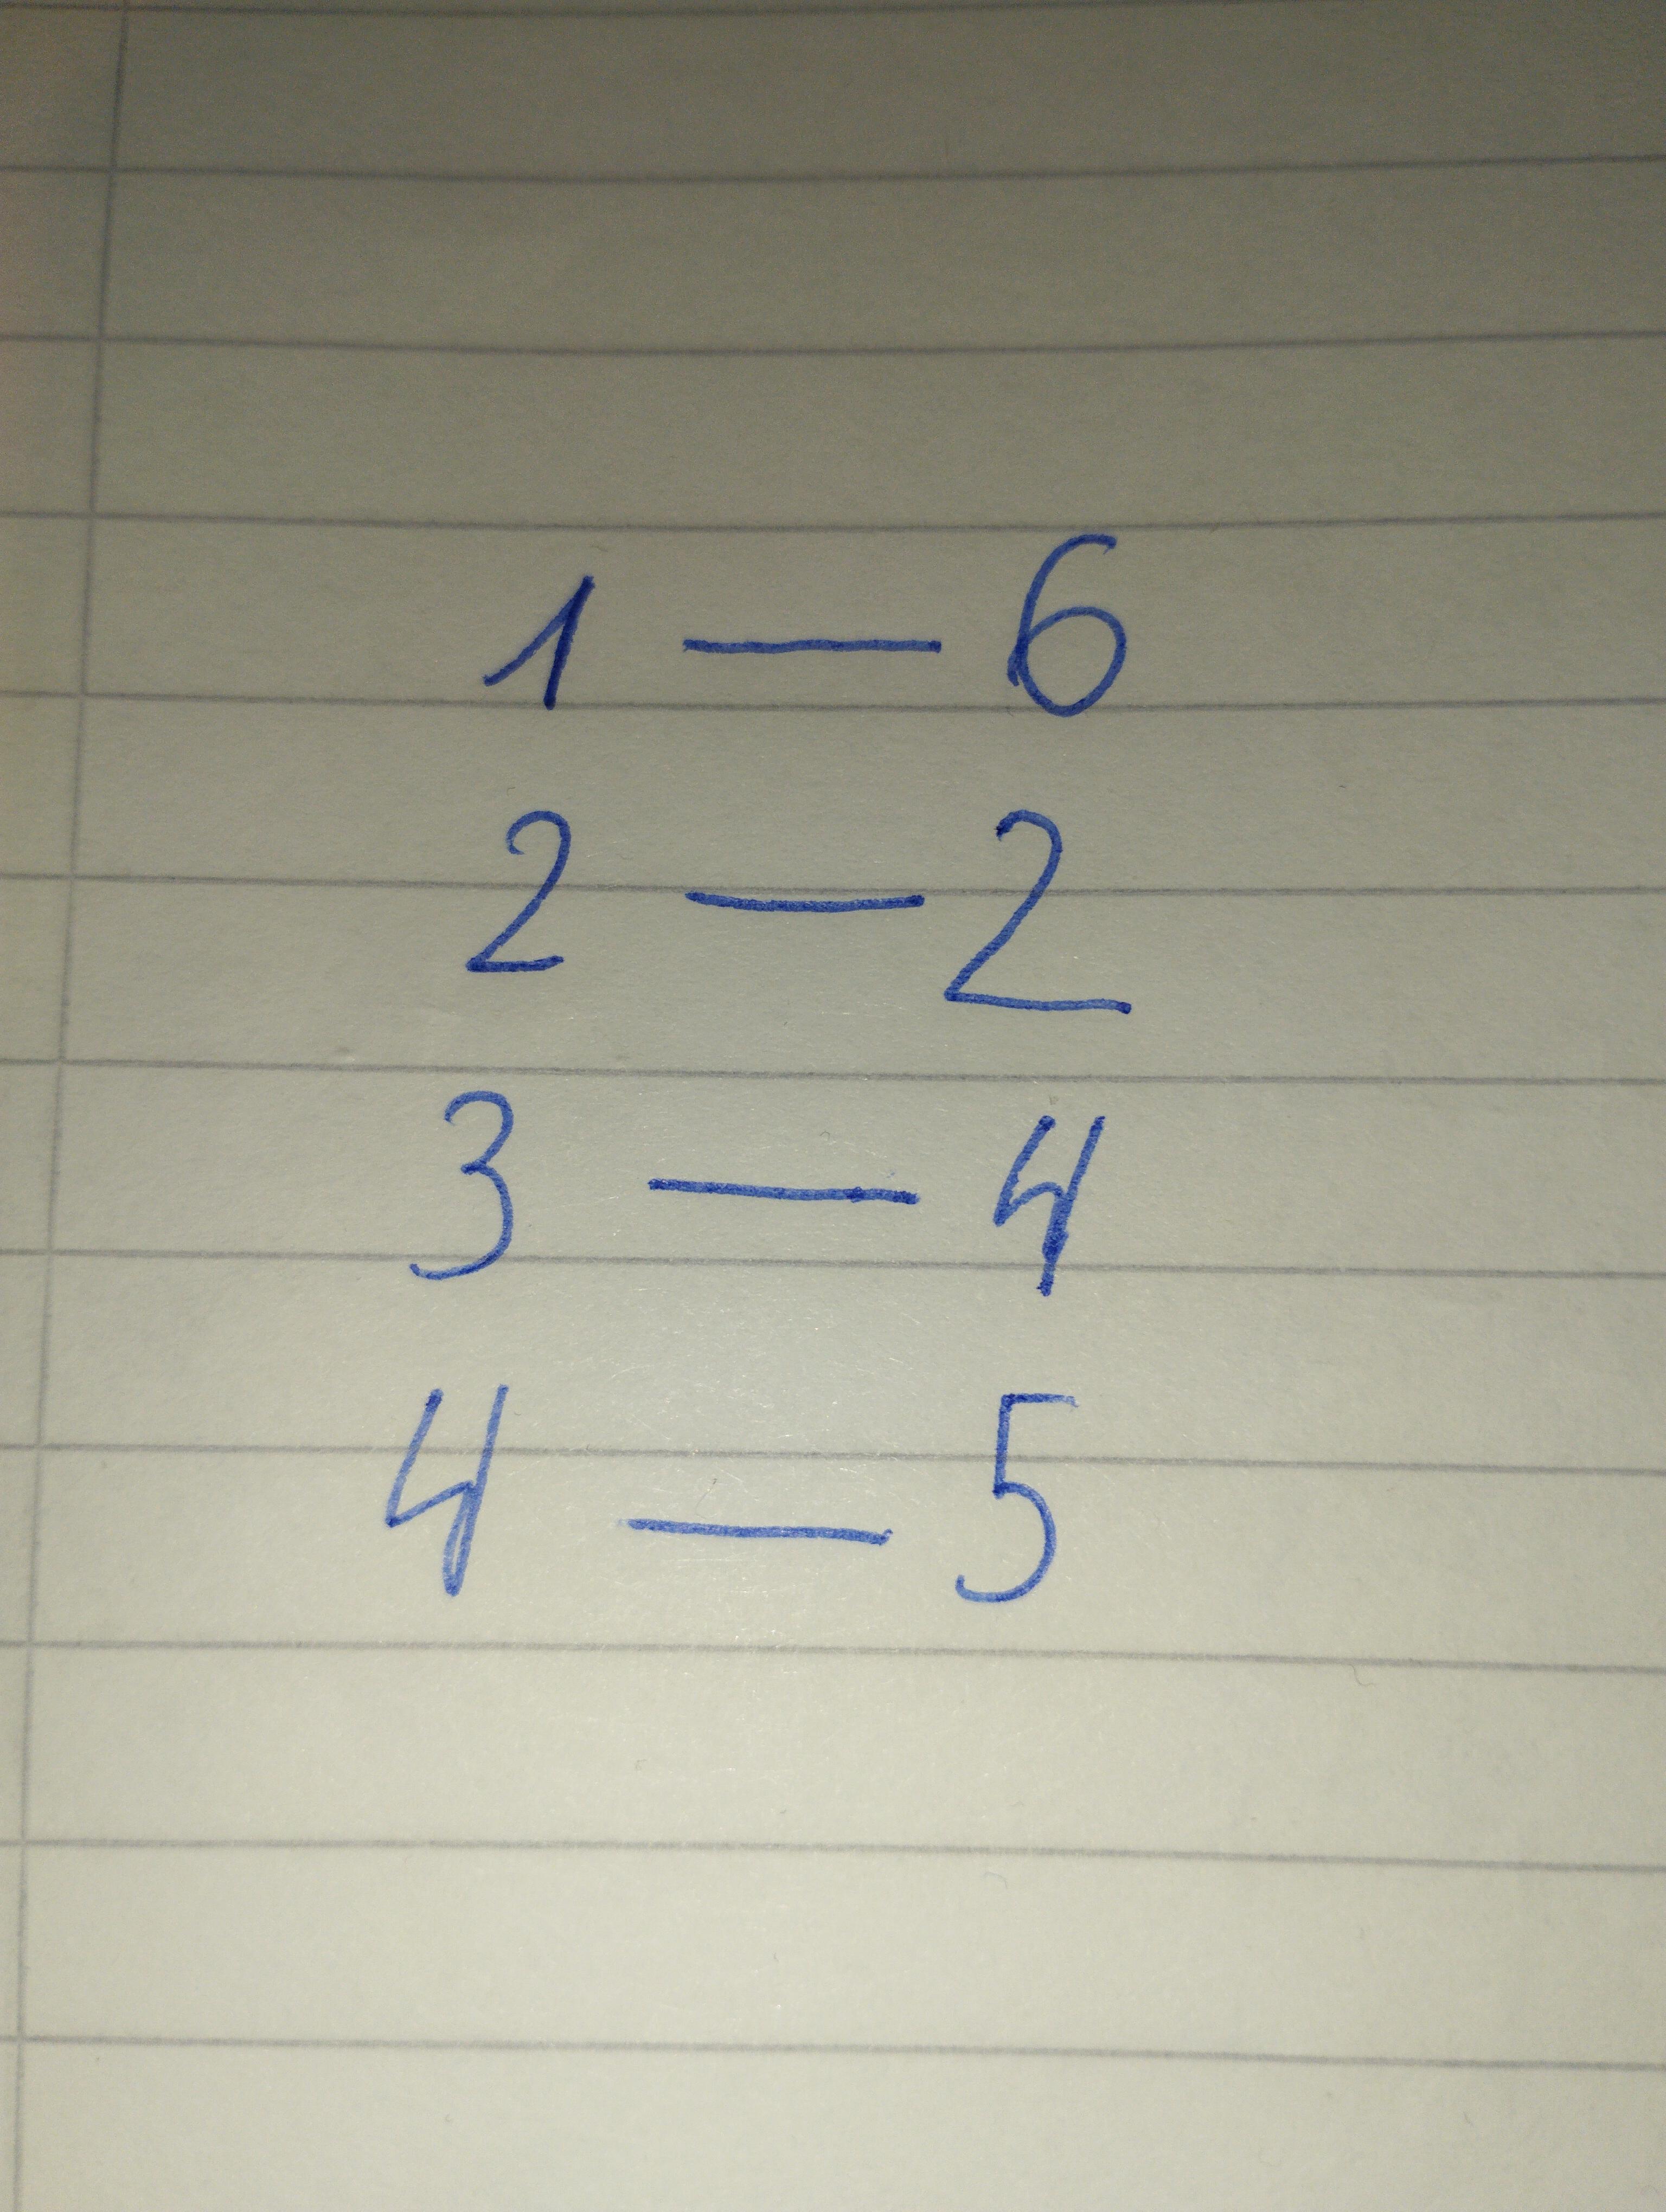 1 — 6
2 — 2
3 — 4
4 — 5